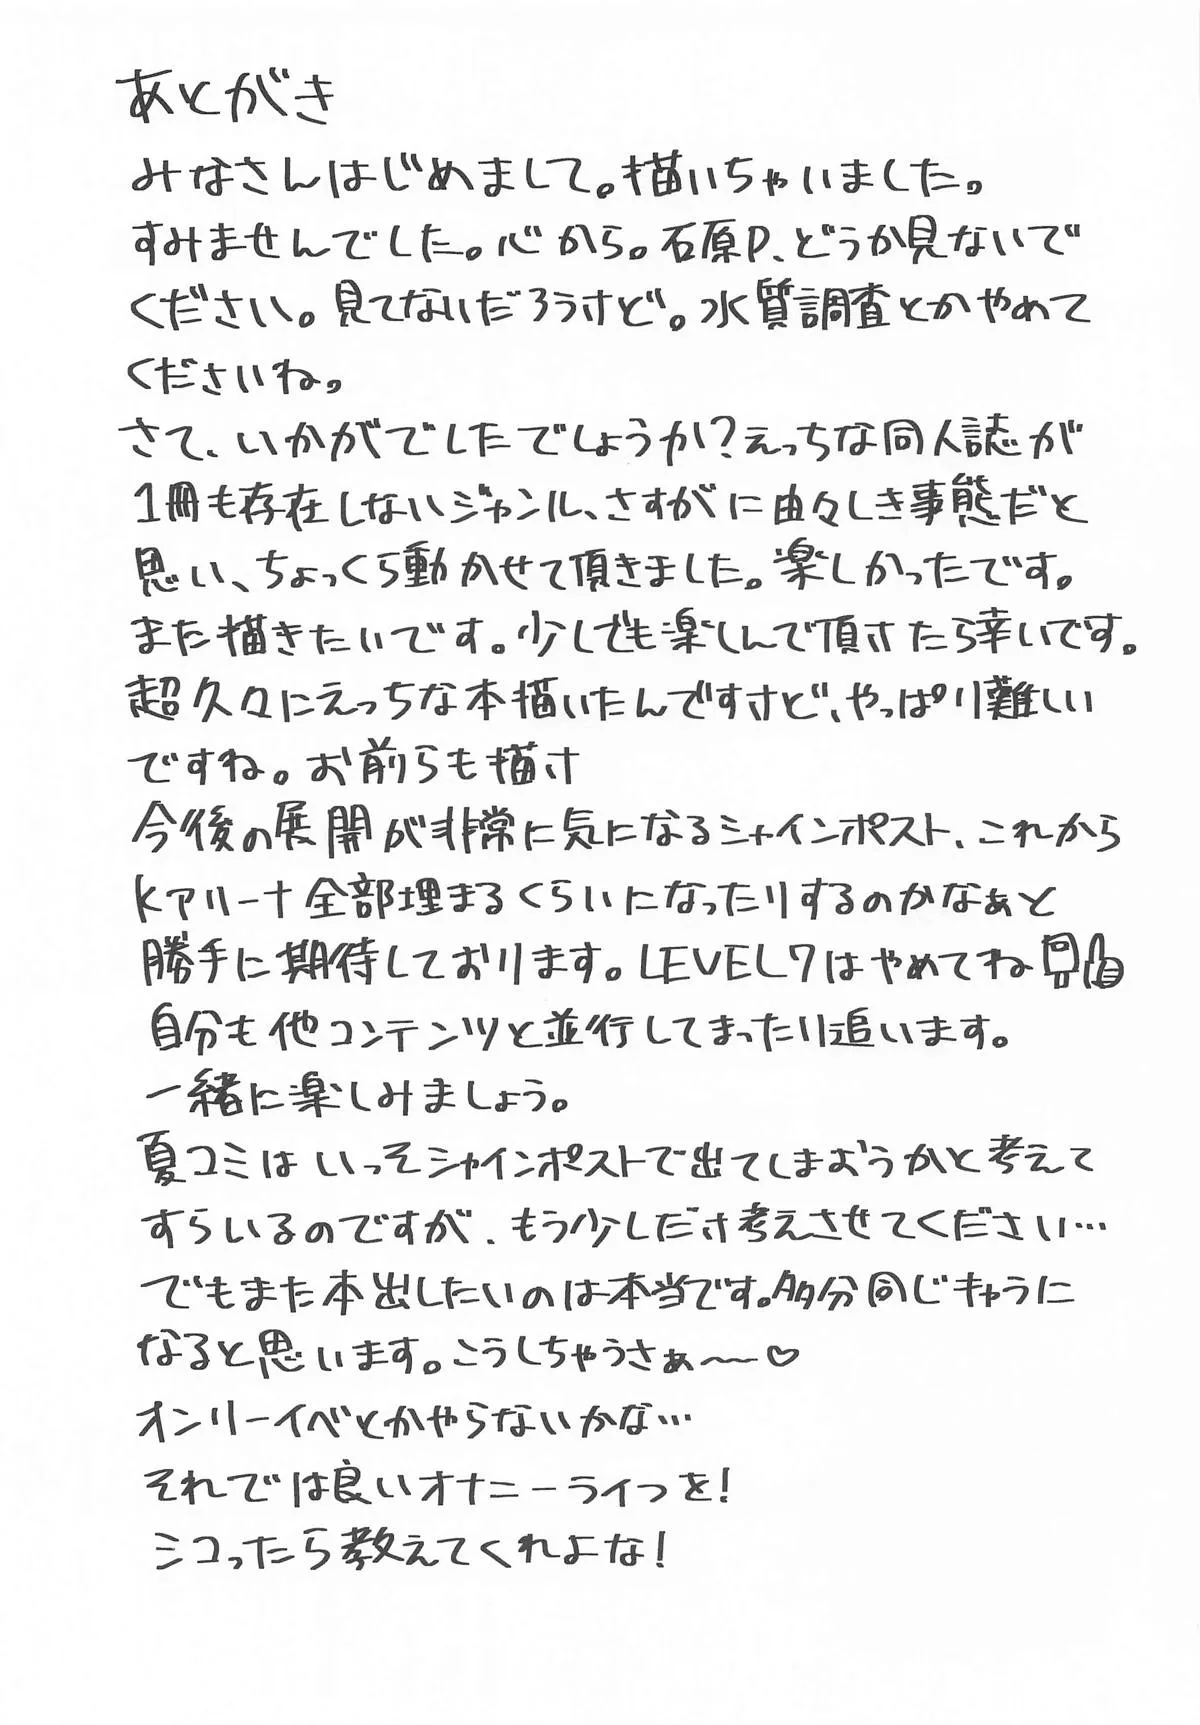 あとがき
みなさんはじめまして。描いちゃいました。
すみませんでした。心から。石原P、どうか見ないで
ください。見てないだろうけど。水質調査とかやめて
くださいね。
さて、いかがでしたでしょうか？えっちな同人誌が
1冊も存在しないジャンル、さすがに由々しき事態だと
思い、ちょっくら動かせて頂きました。楽しかったです。
また描きたいです。少しでも楽しんで頂けたら幸いです。
超久々にえっちな本描いたんですけど、やっぱり難しい
ですね。お前らも描け
今後の展開が非常に気になるシャインポスト、これから
Kアリーナ全部埋まるくらいになったりするのかなぁと
勝手に期待しております。LEVEL7はやめてね
自分も他コンテンツと並行してまったり追います。
一緒に楽しみましょう。
夏コミはいっそシャインポストで出てしまおうかと考えて
すらいるのですが、もう少しだけ考えさせてください…
でもまた本出したいのは本当です。多分同じきゅうに
なると思います。こうしちゃうさぁ〜〜♡
オンリーイベとかやらないかな…
それでは良いオナニーライフを！
シコったら教えてくれよな！